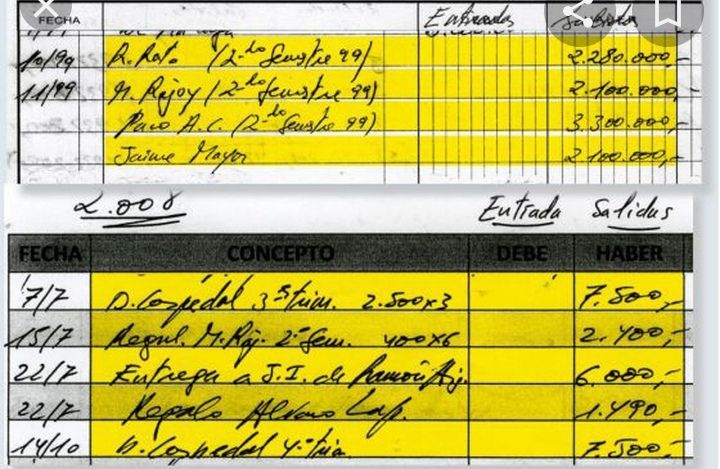 FECHA Entradas Salidas
10/99 R. Rato (2-do Semestre 99) 2.280.000,-
11/99 M. Rajoy (2-do Semestre 99) 2.100.000,-
Paco A.C. (2-do Semestre 99) 3.300.000,-
Jaime Mayor 2.100.000,-
2.008 Entrada Salidas
FECHA CONCEPTO DEBE HABER
7/7 D. Cospedal 3º trim. 2.500x3 7.500,-
15/7 M. Raj. 2º Sem. 400x6 2.400,-
22/7 Entrega a J.I. de 6.000,-
22/7 Regalo Alvaro Lap. 1.490,-
14/10 D. Cospedal 4º trim. 7.500,-